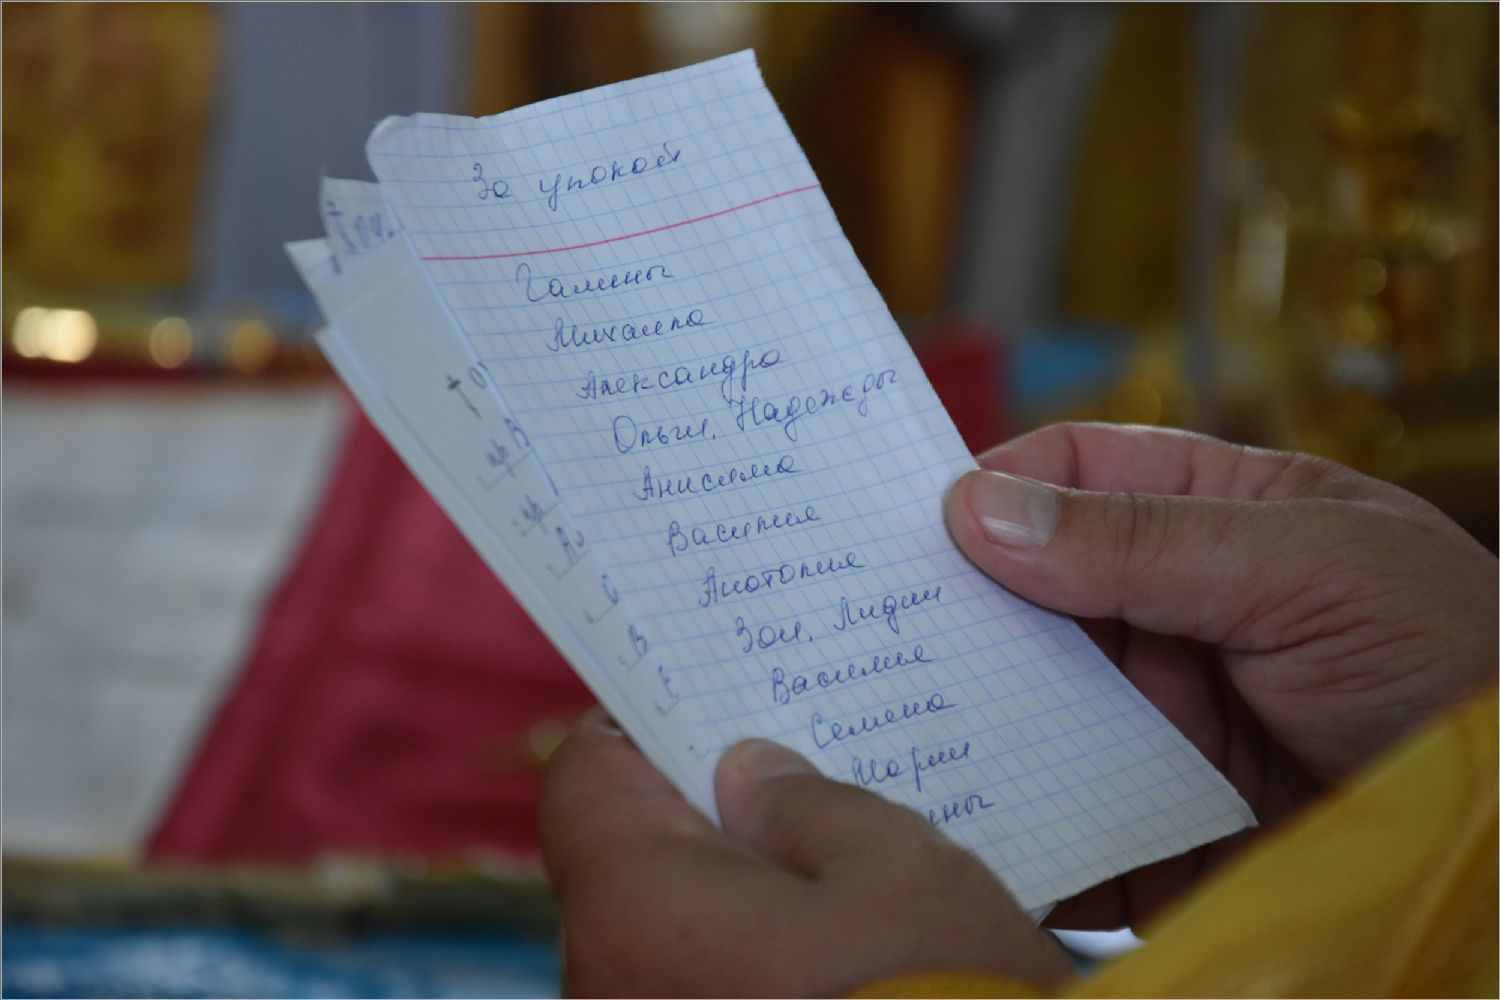 За упокой
Галины
Михаила
Александра
Ольги, Надежды
Анисима
Василия
Анатолия
Зои, Лидии
Василия
Семена
Марии